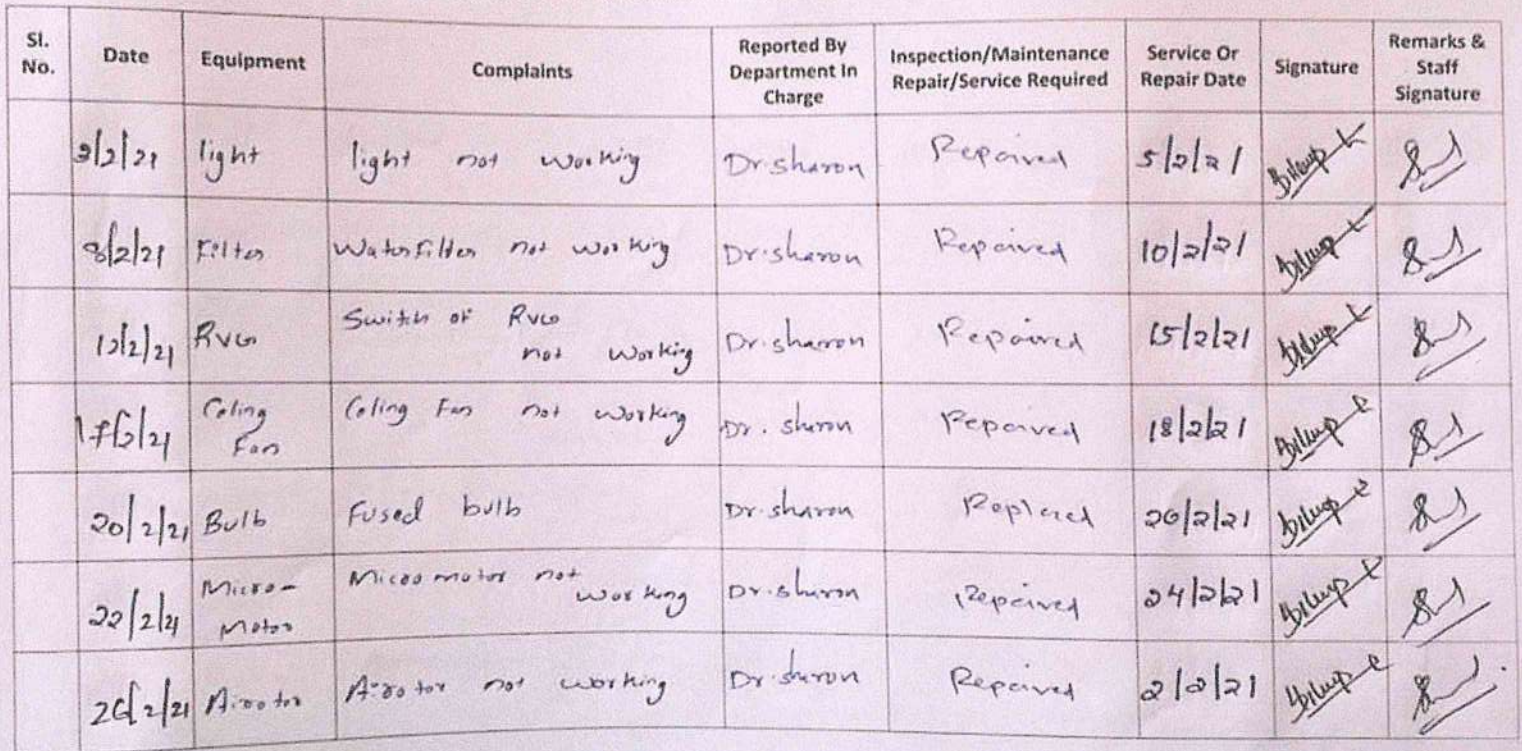 Sl. No. Date Equipment Complaints Reported By Department In Charge Inspection/Maintenance Repair/Service Required Service Or Repair Date Signature Remarks & Staff Signature
3/2/21 light light not working Dr. sharon Repaired 5/2/21
8/2/21 Filter Water Filter not working Dr. sharon Repaired 10/2/21
12/2/21 RVG Switch of RVG not working Dr. sharon Repaired 15/2/21
17/2/21 Celing Fan Celing Fan not working Dr. sharon Repaired 18/2/21
20/2/21 Bulb Fused bulb Dr. sharon Replaced 20/2/21
22/2/21 Micro-Motor Micromotor not working Dr. sharon Repaired 24/2/21
26/2/21 Airotor Airotor not working Dr. sharon Repaired 2/2/21